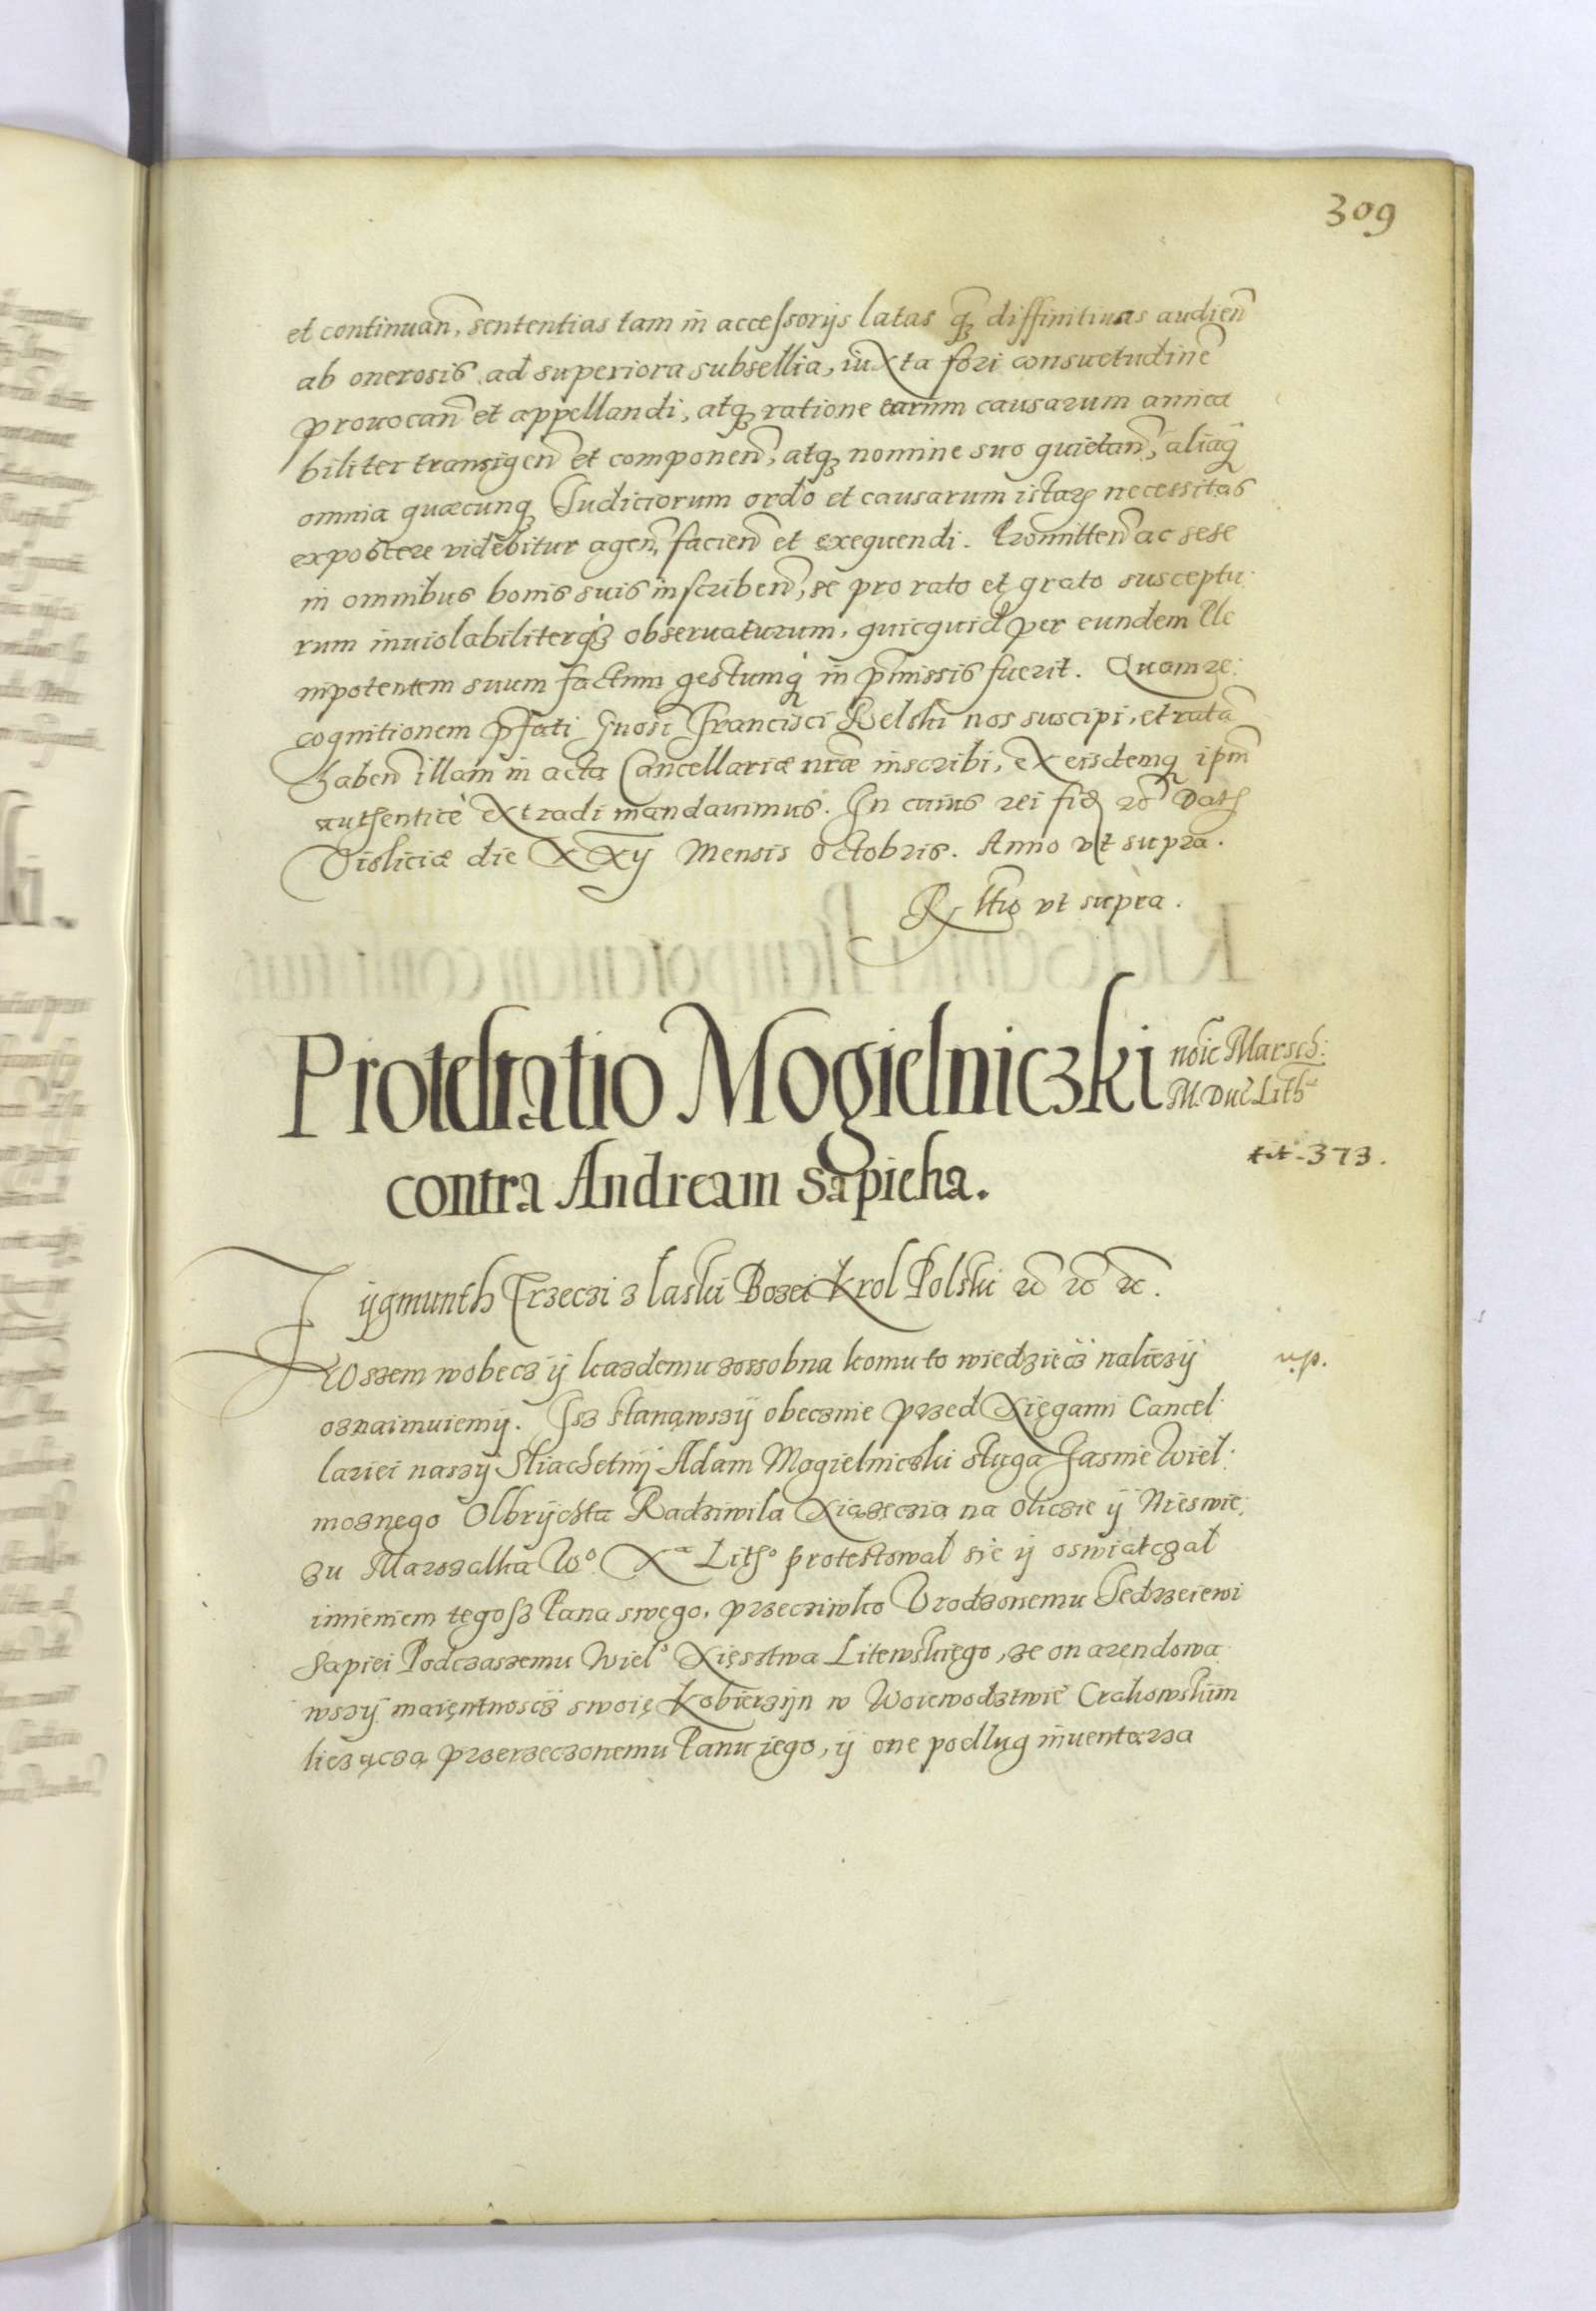 309
et continuan, sententias tam in accessorijs latas q diffinitiuas audien
ab onerosis ad superiora subsellia, iuxta fori consuetudine
prouocan et appellandi, atq ratione earum causarum amica
biliter transigen et componen, atq nomine suo quietan, aliaq
omnia quæcunq Judiciorum ordo et causarum istar necessitas
exposcere videbitur agen, facien et exequendi. Promitten ac sese
in omnibus bonis suis inscriben, se pro rato et grato susceptu
rum inuiolabiliterq obseruaturum, quicquid per eundem Ple
nipotentem suum factum gestumq in pmissis fuerit. Quam re:
cognitionem pfati Gnosi Francisci Relski nos suscipi, et rata
haben illam in acta Cancellariæ nræ inscribi, ex eisdemq ipm
authenticè extradi mandauimus. In cuius rei fid rc Dat
Visliciæ die XXij Mensis Octobris. Anno vt supra.
R ltio vt supra.
Protestatio Mogielniczki noie Marsch:
M. Duc Lith
contra Andream Sapieha.
tit-373.
Zygmunth Trzeczi z laski Bozei Krol Polski rc rc rc.
Wszem wobecz ÿ kazdemu zossobna komu to wiedziecz naliezÿ
n.p.
oznaimuiemÿ. Isz stanąwszÿ obecznie przed Xięgami Cancel:
lariei naszÿ Sliachetnÿ Adam Mogielniczki sługa Jasnie Wiel:
moznego Olbrÿchta Radziwila Xiązęczia na Oliczie ÿ Nieswie:
zu Marszalka Wo. Xa Litho protestowal sie ÿ oswiatczal
imieniem tegosz Pana swego, przecziwko Vrodzonemu Jedrzeiewi
Sapiei Podczaszemu Wielo Xięsztwa Litewskiego, ze on arendowa
wszÿ maiętnoscz swoię Kobierzÿn w Woiewodztwie Crakowskim
liezącza przerzeczonemu Panu iego, ÿ one podlug inuentarza